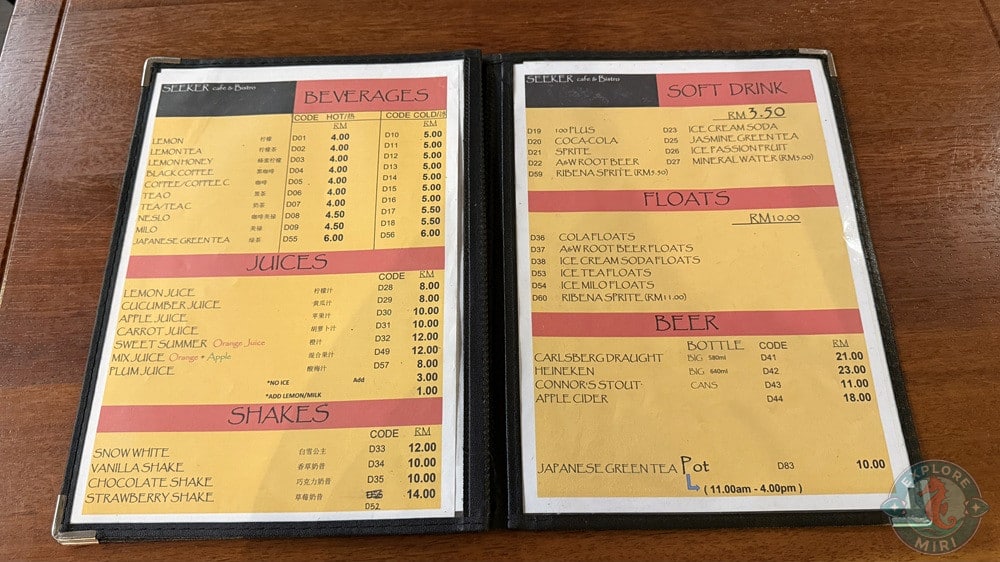 SEEKER cafe & Bistro
BEVERAGES
CODE HOT/热 CODE COLD/冰
RM RM
LEMON 柠檬 D01 4.00 D10 5.00
LEMON TEA 柠檬茶 D02 4.00 D11 5.00
LEMON HONEY 蜂蜜柠檬 D03 4.00 D12 5.00
BLACK COFFEE 黑咖啡 D04 4.00 D13 5.00
COFFEE/COFFEE C 咖啡 D05 4.00 D14 5.00
TEA O 黑茶 D06 4.00 D15 5.00
TEA/TEA C 奶茶 D07 4.00 D16 5.00
NESLO 咖啡美禄 D08 4.50 D17 5.50
MILO 美禄 D09 4.50 D18 5.50
JAPANESE GREEN TEA 绿茶 D55 6.00 D56 6.00
JUICES
CODE RM
LEMON JUCE 柠檬汁 D28 8.00
CUCUMBER JUICE 黄瓜汁 D29 8.00
APPLE JUICE 苹果汁 D30 10.00
CARROT JUICE 胡萝卜汁 D31 10.00
SWEET SUMMER Orange Juice 橙汁 D32 12.00
MIX JUICE Orange + Apple 混合果汁 D49 12.00
PLUM JUICE 酸梅汁 D57 8.00
*NO ICE Add 3.00
*ADD LEMON/MILK 1.00
SHAKES
CODE RM
SNOW WHITE 白雪公主 D33 12.00
VANILLA SHAKE 香草奶昔 D34 10.00
CHOCOLATE SHAKE 巧克力奶昔 D35 10.00
STRAWBERRY SHAKE 草莓奶昔 14.00
D52
SEEKER cafe & Bistro
SOFT DRINK
RM 3.50
D19 100 PLUS D23 ICE CREAM SODA
D20 COCA-COLA D25 JASMINE GREEN TEA
D21 SPRITE D26 ICE PASSION FRUIT
D22 A&W ROOT BEER D27 MINERAL WATER (RM3.00)
D59 RIBENA SPRITE (RM5.50)
FLOATS
RM10.00
D36 COLA FLOATS
D37 A&W ROOT BEER FLOATS
D38 ICE CREAM SODA FLOATS
D53 ICE TEA FLOATS
D54 ICE MILO FLOATS
D60 RIBENA SPRITE (RM11.00)
BEER
BOTTLE CODE RM
CARLSBERG DRAUGHT BIG 580ml D41 21.00
HEINEKEN BIG 640ml D42 23.00
CONNOR'S STOUT CANS D43 11.00
APPLE CIDER D44 18.00
JAPANESE GREEN TEA Pot D83 10.00
( 11.00am - 4.00pm )
EXPLORE
MIRI